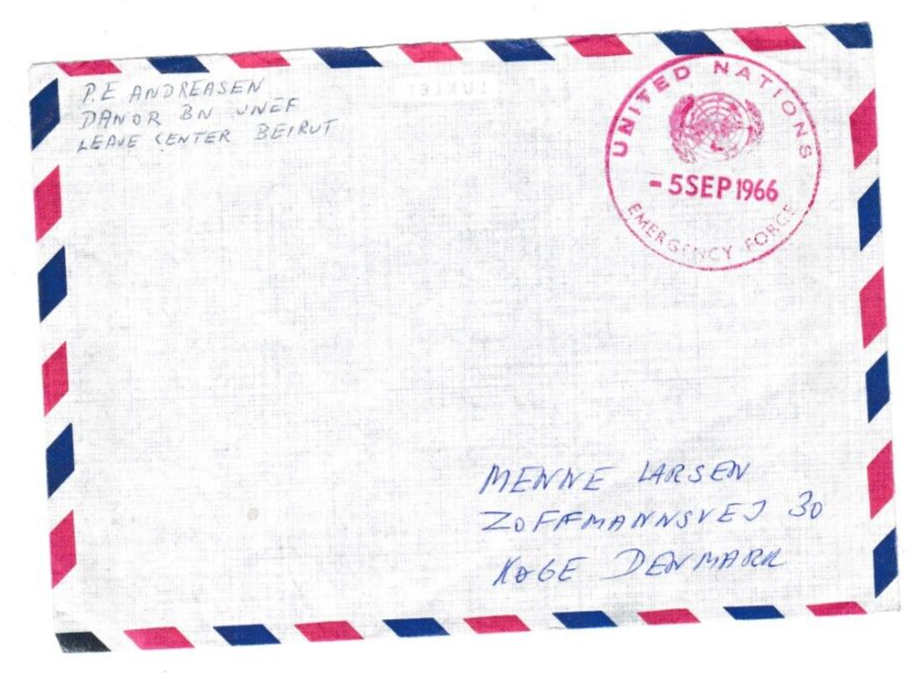 P.E ANDREASEN
DANOR BN UNEF
LEAVE CENTER BEIRUT
UNITED NATIONS
- 5 SEP 1966
EMERGENCY FORCE
MENNE LARSEN
ZOFFMANNSVEJ 30
KØGE DENMARK